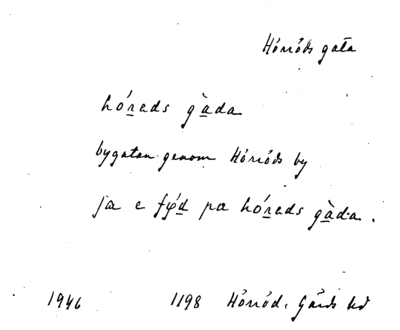 Hörröds gata
hó́reds gàda
bygatan genom Hörröds by
ja e fǿd pa hó́reds gàda.
1946 1198 Hörröd, Gärds hd